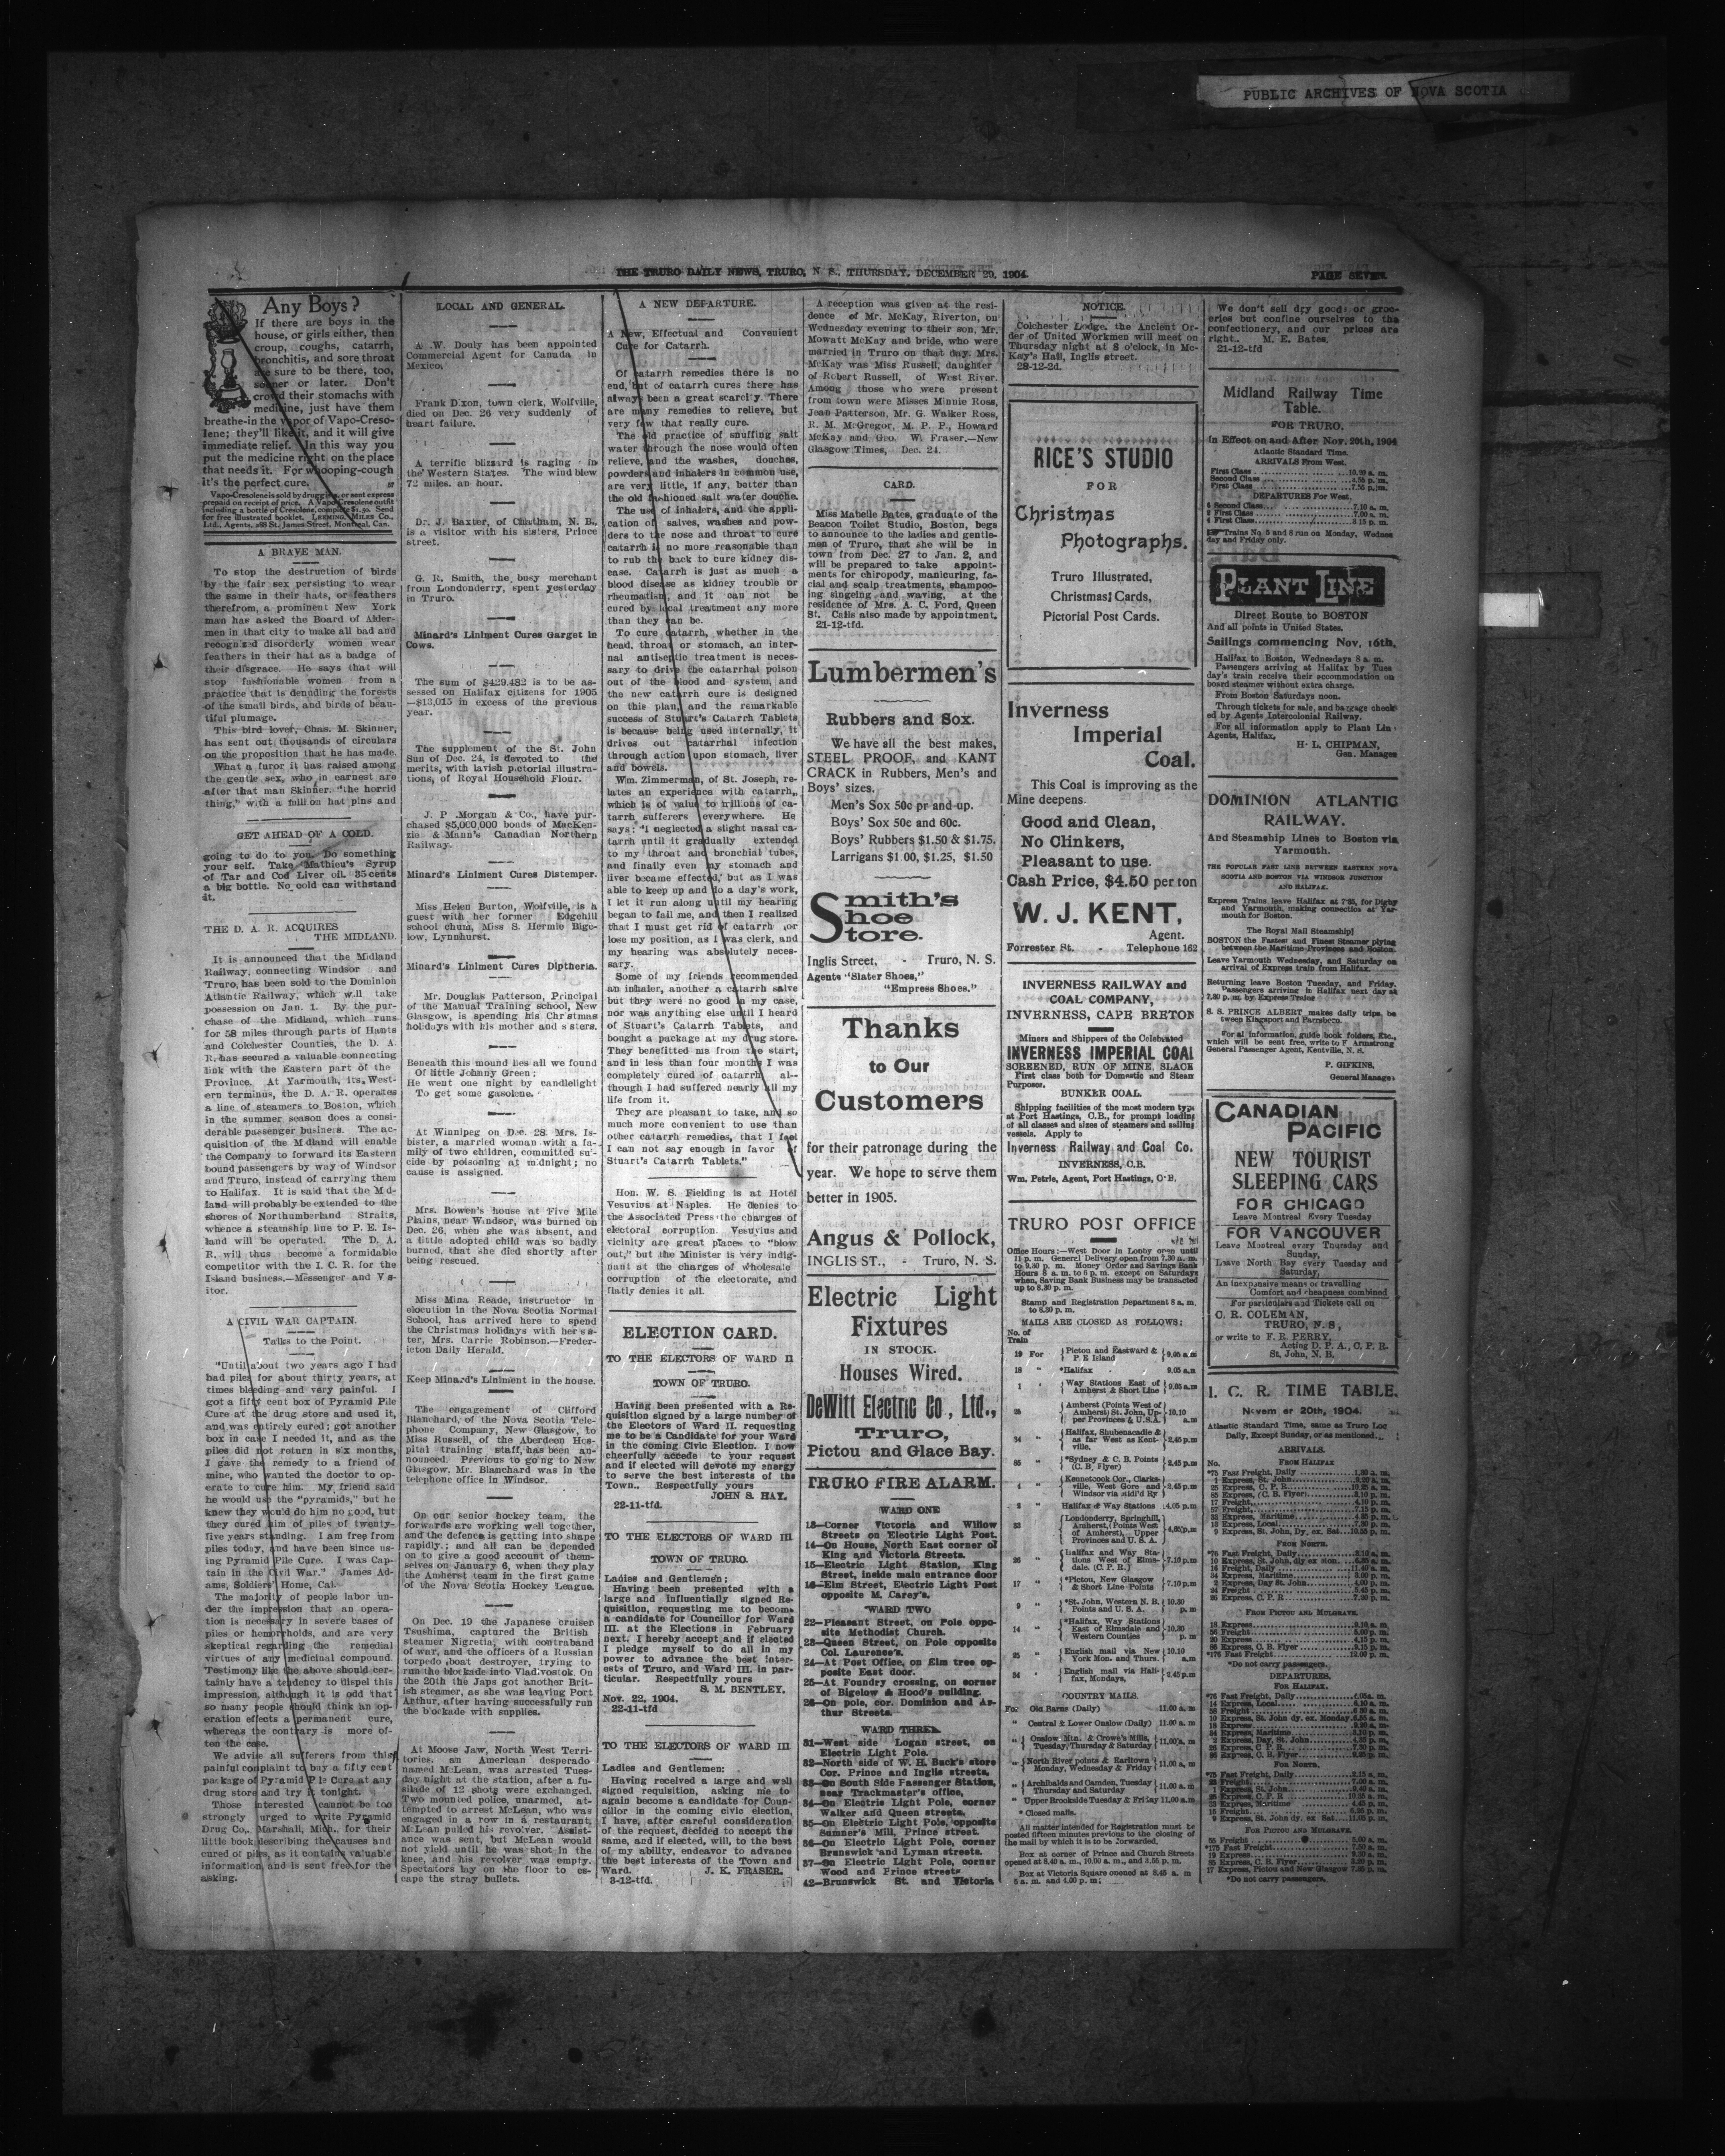 PUBLIC ARCHIVES OF NOVA SCOTIA
THE TRURO DAILY NEWS, TRURO, N S., THURSDAY, DECEMBER 29, 1904.
PAGE SEVEN.
Any Boys?
If there are boys in the
house, or girls either, then
croup, coughs, catarrh,
bronchitis, and sore throat
are sure to be there, too,
sooner or later. Don't
crowd their stomachs with
medicine, just have them
breathe-in the vapor of Vapo-Creso-
lene; they'll like it, and it will give
immediate relief. In this way you
put the medicine right on the place
that needs it. For whooping-cough
it's the perfect cure.
Vapo-Cresolene is sold by druggists, or sent express
prepaid on receipt of price. A Vapo-Cresolene outfit
including a bottle of Cresolene, complete $1.50. Send
for free illustrated booklet. LEEMING, MILES CO.,
Ltd., Agents, 288 St. James Street, Montreal, Can.
A BRAVE MAN.
To stop the destruction of birds
by the fair sex persisting to wear
the same in their hats, or feathers
therefrom, a prominent New York
man has asked the Board of Alder-
men in that city to make all bad and
recognized disorderly women wear
feathers in their hat as a badge of
their disgrace. He says that will
stop fashionable women from a
practice that is denuding the forests
of the small birds, and birds of beau-
tiful plumage.
This bird lover, Chas. M. Skinner,
has sent out thousands of circulars
on the proposition that he has made.
What a furor it has raised among
the gentle sex, who in earnest are
after that man Skinner, "the horrid
thing," with a full on hat pins and
GET AHEAD OF A COLD.
going to do to you. Do something
your self. Take Mathieu's Syrup
of Tar and Cod Liver oil. 35 cents
a big bottle. No cold can withstand
it.
THE D. A. R. ACQUIRES
THE MIDLAND.
It is announced that the Midland
Railway, connecting Windsor and
Truro, has been sold to the Dominion
Atlantic Railway, which will take
possession on Jan. 1. By the pur-
chase of the Midland, which runs
for 58 miles through parts of Hants
and Colchester Counties, the D. A.
R. has secured a valuable connecting
link with the Eastern part of the
Province. At Yarmouth, its West-
ern terminus, the D. A. R. operates
a line of steamers to Boston, which
in the summer season does a consi-
derable passenger business. The ac-
quisition of the Midland will enable
the Company to forward its Eastern
bound passengers by way of Windsor
and Truro, instead of carrying them
to Halifax. It is said that the Mid-
land will probably be extended to the
shores of Northumberland Straits,
whence a steamship line to P. E. Is-
land will be operated. The D. A.
R. will thus become a formidable
competitor with the I. C. R. for the
Island business.—Messenger and Vis-
itor.
A CIVIL WAR CAPTAIN.
Talks to the Point.
"Until about two years ago I had
bad piles for about thirty years, at
times bleeding and very painful. I
got a fifty cent box of Pyramid Pile
Cure at the drug store and used it,
and was entirely cured; got another
box in case I needed it, and as the
piles did not return in six months,
I gave the remedy to a friend of
mine, who wanted the doctor to op-
erate to cure him. My friend said
he would use the "pyramids," but he
knew they would do him no good, but
they cured him of piles of twenty-
five years standing. I am free from
piles today, and have been since us-
ing Pyramid Pile Cure. I was Cap-
tain in the Civil War." James Ad-
ams, Soldiers' Home, Cal.
The majority of people labor un-
der the impression that an opera-
tion is necessary in severe cases of
piles or hemorrhoids, and are very
skeptical regarding the remedial
virtues of any medicinal compound.
Testimony like the above should cer-
tainly have a tendency to dispel this
impression, although it is odd that
so many people should think an op-
eration effects a permanent cure,
whereas the contrary is more of-
ten the case.
We advise all sufferers from this
painful complaint to buy a fifty cent
package of Pyramid Pile Cure at any
drug store and try it tonight.
Those interested cannot be too
strongly urged to write Pyramid
Drug Co., Marshall, Mich., for their
little book describing the causes and
cured of piles, as it contains valuable
information, and is sent free for the
asking.
LOCAL AND GENERAL.
A .W. Douly has been appointed
Commercial Agent for Canada in
Mexico.
Frank Dixon, town clerk, Wolfville,
died on Dec. 26 very suddenly of
heart failure.
A terrific blizzard is raging in
the Western States. The wind blew
72 miles. an hour.
Dr. J. Baxter, of Chatham, N. B.,
is a visitor with his sisters, Prince
street.
G. R. Smith, the busy merchant
from Londonderry, spent yesterday
in Truro.
Minard's Liniment Cures Garget in
Cows.
The sum of $429,482 is to be as-
sessed on Halifax citizens for 1905
—$13,015 in excess of the previous
year.
The supplement of the St. John
Sun of Dec. 24, is devoted to the
merits, with lavish pictorial illustra-
tions, of Royal Household Flour.
J. P .Morgan & Co., have pur-
chased $5,000,000 bonds of MacKen-
zie & Mann's Canadian Northern
Railway.
Minard's Liniment Cures Distemper.
Miss Helen Burton, Wolfville, is a
guest with her former Edgehill
school chum, Miss S. Hermie Bige-
low, Lynnhurst.
Minard's Liniment Cures Diptheria.
Mr. Douglas Patterson, Principal
of the Manual Training school, New
Glasgow, is spending his Christmas
holidays with his mother and sisters.
Beneath this mound lies all we found
Of little Johnny Green;
He went one night by candlelight
To get some gasolene.
At Winnipeg on Dec. 28 Mrs. Is-
bister, a married woman with a fa-
mily of two children, committed sui-
cide by poisoning at midnight; no
cause is assigned.
Mrs. Bowen's house at Five Mile
Plains, near Windsor, was burned on
Dec. 26, when she was absent, and
a little adopted child was so badly
burned, that she died shortly after
being rescued.
Miss Mina Reade, instructor in
elocution in the Nova Scotia Normal
School, has arrived here to spend
the Christmas holidays with her sis-
ter, Mrs. Carrie Robinson.—Freder-
icton Daily Herald.
Keep Minard's Liniment in the house.
The engagement of Clifford
Blanchard, of the Nova Scotia Tele-
phone Company, New Glasgow, to
Miss Russell, of the Aberdeen Hos-
pital training staff, has been an-
nounced. Previous to going to New
Glasgow, Mr. Blanchard was in the
telephone office in Windsor.
On our senior hockey team, the
forwards are working well together,
and the defence is getting into shape
rapidly.; and all can be depended
on to give a good account of them-
selves on January 6, when they play
the Amherst team in the first game
of the Nova Scotia Hockey League.
On Dec. 19 the Japanese cruiser
Tsushima, captured the British
steamer Nigretia, with contraband
of war, and the officers of a Russian
torpedo boat destroyer, trying to
run the blockade into Vladivostok. On
the 20th the Japs got another Brit-
ish steamer, as she was leaving Port
Arthur, after having successfully run
the blockade with supplies.
At Moose Jaw, North West Terri-
tories. an American desperado
named McLean, was arrested Tues-
day night at the station, after a fu-
silade of 12 shots were exchanged.
Two mounted police, unarmed, at-
tempted to arrest McLean, who was
engaged in a row in a restaurant.
McLean pulled his revolver. Assist-
ance was sent, but McLean would
not yield until he was shot in the
knee, and his revolver was empty.
Spectators lay on the floor to es-
cape the stray bullets.
A NEW DEPARTURE.
A New, Effectual and Convenient
Cure for Catarrh.
Of catarrh remedies there is no
end, but of catarrh cures there has
always been a great scarcity. There
are many remedies to relieve, but
very few that really cure.
The old practice of snuffing salt
water through the nose would often
relieve, and the washes, douches,
powders and inhalers in common use,
are very little, if any, better than
the old fashioned salt water douche.
The use of inhalers, and the appli-
cation of salves, washes and pow-
ders to the nose and throat to cure
catarrh is no more reasonable than
to rub the back to cure kidney dis-
ease. Catarrh is just as much a
blood disease as kidney trouble or
rheumatism, and it can not be
cured by local treatment any more
than they can be.
To cure catarrh, whether in the
head, throat or stomach, an inter-
nal antiseptic treatment is neces-
sary to drive the catarrhal poison
out of the blood and system, and
the new catarrh cure is designed
on this plan, and the remarkable
success of Stuart's Catarrh Tablets
is because being used internally, it
drives out catarrhal infection
through action upon stomach, liver
and bowels.
Wm. Zimmerman, of St. Joseph, re-
lates an experience with catarrh,
which is of value to millions of ca-
tarrh sufferers everywhere. He
says: "I neglected a slight nasal ca-
tarrh until it gradually extended
to my throat and bronchial tubes,
and finally even my stomach and
liver became effected, but as I was
able to keep up and do a day's work,
I let it run along until my hearing
began to fail me, and then I realized
that I must get rid of catarrh or
lose my position, as I was clerk, and
my hearing was absolutely neces-
sary.
Some of my friends recommended
an inhaler, another a catarrh salve
but they were no good in my case,
nor was anything else until I heard
of Stuart's Catarrh Tablets, and
bought a package at my drug store.
They benefitted me from the start,
and in less than four months I was
completely cured of catarrh al--
though I had suffered nearly all my
life from it.
They are pleasant to take, and so
much more convenient to use than
other catarrh remedies, that I feel
I can not say enough in favor of
Stuart's Catarrh Tablets."
Hon. W. S. Fielding is at Hotel
Vesuvius at Naples. He denies to
the Associated Press the charges of
electoral corruption. Vesuvius and
vicinity are great places to "blow
out," but the Minister is very indig-
nant at the charges of wholesale
corruption of the electorate, and
flatly denies it all.
ELECTION CARD.
TO THE ELECTORS OF WARD II
TOWN OF TRURO.
Having been presented with a Re-
quisition signed by a large number of
the Electors of Ward II. requesting
me to be a Candidate for your Ward
in the coming Civic Election. I now
cheerfully accede to your request
and if elected will devote my energy
to serve the best interests of the
Town.. Respectfully yours
JOHN S. HAY.
22-11-tfd.
TO THE ELECTORS OF WARD III.
TOWN OF TRURO.
Ladies and Gentlemen;
Having been presented with a
large and influentially signed Re-
quisition, requesting me to become
a candidate for Councillor for Ward
III. at the Elections in February
next. I hereby accept and if elected
I pledge myself to do all in my
power to advance the best inter-
ests of Truro, and Ward III. in par-
ticular. Respectfully yours
S. M. BENTLEY.
Nov. 22, 1904.
22-11-tfd
TO THE ELECTORS OF WARD III
Ladies and Gentlemen:
Having received a large and well
signed requisition, asking me to
again become a candidate for Coun-
cillor in the coming civic election,
I have, after careful consideration
of the request, decided to accept the
same, and if elected, will, to the best
of my ability, endeavor to advance
the best interests of the Town and
Ward. J. K. FRASER.
3-12-tfd.
A reception was given at the resi-
dence of Mr. McKay, Riverton, on
Wednesday evening to their son, Mr.
Mowatt McKay and bride, who were
married in Truro on that day. Mrs.
McKay was Miss Russell, daughter
of Robert Russell, of West River.
Among those who were present
from town were Misses Minnie Ross,
Jean Patterson, Mr. G. Walker Ross,
R. M. McGregor, M. P. P., Howard
McKay and Geo. W. Fraser.—New
Glasgow Times, Dec. 24.
CARD.
Miss Mabelle Bates, graduate of the
Beacon Toilet Studio, Boston, begs
to announce to the ladies and gentle-
men of Truro, that she will be in
town from Dec. 27 to Jan. 2, and
will be prepared to take appoint-
ments for chiropody, manicuring, fa-
cial and scalp treatments, shampoo-
ing singeing and waving, at the
residence of Mrs. A. C. Ford, Queen
St. Calls also made by appointment.
21-12-tfd.
Lumbermen's
Rubbers and Sox.
We have all the best makes,
STEEL PROOF, and KANT
CRACK in Rubbers, Men's and
Boys' sizes.
Men's Sox 50c pr and up.
Boys' Sox 50c and 60c.
Boys' Rubbers $1.50 & $1.75.
Larrigans $1 00, $1.25, $1.50
Smith's
Shoe
Store.
Inglis Street, - Truro, N. S.
Agents "Slater Shoes,"
"Empress Shoes."
Thanks
to Our
Customers
for their patronage during the
year. We hope to serve them
better in 1905.
Angus & Pollock,
INGLIS ST., - Truro, N. S.
Electric Light
Fixtures
IN STOCK.
Houses Wired.
DeWitt Electric Co., Ltd.,
Truro,
Pictou and Glace Bay.
TRURO FIRE ALARM.
WARD ONE
13—Corner Victoria and Willow
Streets on Electric Light Post.
14—On House, North East corner of
King and Victoria Streets.
15—Electric Light Station, King
Street, inside main entrance door
16—Elm Street, Electric Light Post
opposite M. Carey's.
WARD TWO
22—Pleasant Street, on Pole oppo-
site Methodist Church.
23—Queen Street, on Pole opposite
Col. Laurence's.
24—At Post Office, on Elm tree op-
posite East door.
25—At Foundry crossing, on corner
of Bigelow & Hood's building.
26—On pole, cor. Dominion and Ar-
thur Streets.
WARD THREE.
31—West side Logan street, on
Electric Light Pole.
32—North side of W. H. Buck's store
Cor. Prince and Inglis streets.
33—On South Side Passenger Station,
near Trackmaster's office,
34—On Electric Light Pole, corner
Walker and Queen streets.
35—On Electric Light Pole, opposite
Sumner's Mill, Prince street.
36—On Electric Light Pole, corner
Brunswick and Lyman streets.
37—On Electric Light Pole, corner
Wood and Prince streets
42—Brunswick St. and Victoria
NOTICE.
Colchester Lodge, the Ancient Or-
der of United Workmen will meet on
Thursday night at 8 o'clock, in Mc-
Kay's Hall, Inglis street.
28-12-2d.
RICE'S STUDIO
FOR
Christmas
Photographs.
Truro Illustrated,
Christmas Cards,
Pictorial Post Cards.
Inverness
Imperial
Coal.
This Coal is improving as the
Mine deepens.
Good and Clean,
No Clinkers,
Pleasant to use.
Cash Price, $4.50 per ton
W. J. KENT,
Agent.
Forrester St. - Telephone 162
INVERNESS RAILWAY and
COAL COMPANY,
INVERNESS, CAPE BRETON
Miners and Shippers of the Celebrated
INVERNESS IMPERIAL COAL
SCREENED, RUN OF MINE, SLACK
First class both for Domestic and Steam
Purposes.
BUNKER COAL.
Shipping facilities of the most modern type
at Port Hastings, C.B., for prompt loading
of all classes and sizes of steamers and sailing
vessels. Apply to
Inverness Railway and Coal Co.
INVERNESS, C.B.
Wm. Petrie, Agent, Port Hastings, C.B.
TRURO POST OFFICE
Office Hours:—West Door in Lobby open until
11 p. m. General Delivery open from 7.30 a. m.
to 9.30 p. m. Money Order and Savings Bank
Hours 8 a. m. to 6 p. m. except on Saturdays
when, Saving Bank Business may be transacted
up to 8.30 p. m.
Stamp and Registration Department 8 a. m.
to 8.30 p. m.
MAILS ARE CLOSED AS FOLLOWS:
No. of
Train
19 For Pictou and Eastward & P. E Island 9.05 a.m
18 " *Halifax - 9.05 a.m
1 " Way Stations East of Amherst & Short Line
Amherst (Points West of
Amherst) St. John, Up-
per Provinces & U.S.A. 10.10 a.m
34 " Halifax, Shubenacadie &
as far West as Kent-
ville. 2.45 p.m
85 " *Sydney & C. B. Points
(C. B. Flyer) 2.45 p.m
4 " Kennetcook Cor., Clarks-
ville, West Gore and
Windsor via Midl'd Ry 2.45 p.m
2 " Halifax & Way Stations 4.05 p.m
33 " Londonderry, Springhill,
Amherst, (Points West
of Amherst), Upper
Provinces and U. S. A.
26 " Halifax and Way Sta-
tions West of Elms-
dale. (C. P. R.) 7.10 p.m
17 " *Pictou, New Glasgow
& Short Line Points 7.10 p.m
9 " *St. John, Western N. B.
Points and U. S. A. 10.30 p. m
14 " *Halifax, Way Stations
East of Elmsdale and
Western Counties 10.30 p. m
25 " English mail via New
York Mon. and Thurs. 10.10 a.m
34 " English mail via Hali-
fax, Mondays, 2.45 p.m
COUNTRY MAILS.
For Old Barns (Daily) 11.00 a. m
" Central & Lower Onslow (Daily) 11.00 a. m
" Onslow Mtn. & Crowe's Mills,
Tuesday, Thursday & Saturday 11.00 a. m
" North River points & Earltown
Monday, Wednesday & Friday 11.00 a. m
" Archibalds and Camden, Tuesday
Thursday and Saturday 11.00 a. m
" Upper Brookside Tuesday & Friday 11.00 a. m
* Closed mails.
All matter intended for Registration must be
posted fifteen minutes previous to the closing of
the mail by which it is to be forwarded.
Box at corner of Prince and Church Streets
opened at 8.40 a. m., 10.00 a. m., and 3.55 p. m.
Box at Victoria Square opened at 8.45 a. m
5 a. m. and 4.00 p. m;
We don't sell dry goods or groc-
eries but confine ourselves to the
confectionery, and our prices are
right.. M. E. Bates.
21-12-tfd
Midland Railway Time
Table.
FOR TRURO.
In Effect on and After Nov. 20th, 1904
Atlantic Standard Time.
ARRIVALS From West.
First Class
Second Class
First Class
DEPARTURES For West.
Second Class 7.10 a. m.
First Class 7.00 a. m.
4 First Class 3 15 p. m.
Trains No 5 and 8 run on Monday, Wednes
day and Friday only.
PLANT LINE
Direct Route to BOSTON
And all points in United States.
Sailings commencing Nov, 16th,
Halifax to Boston, Wednesdays 8 a. m.
Passengers arriving at Halifax by Tues
day's train receive their accommodation on
board steamer without extra charge.
From Boston Saturdays noon.
Through tickets for sale, and baggage check
ed by Agents Intercolonial Railway.
For all information apply to Plant Lin
Agents, Halifax,
H. L. CHIPMAN,
Gen. Manager
DOMINION ATLANTIC
RAILWAY.
And Steamship Lines to Boston via
Yarmouth.
THE POPULAR FAST LINE BETWEEN EASTERN NOVA
SCOTIA AND BOSTON VIA WINDSOR JUNCTION
AND HALIFAX.
Express Trains leave Halifax at 7.25, for Digby
and Yarmouth, making connection at Yar-
mouth for Boston.
The Royal Mail Steamship
BOSTON the Fastest and Finest Steamer plying
between the Maritime Provinces and Boston.
Leave Yarmouth Wednesday, and Saturday on
arrival of Express train from Halifax.
Returning leave Boston Tuesday, and Friday.
Passengers arriving in Halifax next day at
7.30 p. m. by Express Train
S. S. PRINCE ALBERT makes daily trips, be
tween Kingsport and Parrsboro.
For al information, guide book folders, Etc.,
which will be sent free, write to F Armstrong
General Passenger Agent, Kentville, N. S.
P. GIFKINS,
General Manager
CANADIAN
PACIFIC
NEW TOURIST
SLEEPING CARS
FOR CHICAGO
Leave Montreal Every Tuesday
FOR VANCOUVER
Leave Montreal every Thursday and
Sunday,
Leave North Bay every Tuesday and
Saturday,
An inexpensive means of travelling
Comfort and cheapness combined
For particulars and Tickets call on
C. R. COLEMAN,
TRURO, N. S,
or write to F. R. PERRY,
Acting D. P. A., C. P. R.
St. John, N. B.
I. C. R. TIME TABLE.
Novem er 20th, 1904.
Atlantic Standard Time, same as Truro Loc
Daily, Except Sunday, or as mentioned.
ARRIVALS.
FROM HALIFAX
No.
*75 Fast Freight, Daily
1 Express, St. John
25 Express, C. P. R
85 Express, (C. B. Flyer)
17 Freight
57 Freight
33 Express, Maritime
13 Express, Local
9 Express, St. John, Dy. ex. Sat. 10.55 p. m.
FROM NORTH.
*76 Fast Freight, Daily
10 Express, St. John, dly ex Mon.
16 Freight, Daily
34 Express, Maritime
2 Express, Day St. John
24 Freight
26 Express, C. P. R
FROM PICTOU AND MULGRAVE.
18 Express
56 Freight
20 Express
86 Express, C. B. Flyer
*176 Fast Freight
*Do not carry passengers.
DEPARTURES.
FOR HALIFAX.
*76 Fast Freight, Daily
14 Express, Local
58 Freight
10 Express, St. John dy. ex. Monday
18 Express
34 Express, Maritime
2 Express, Day, St. John
26 Express, C P. R.
86 Express, C. B. Flyer
FOR NORTH.
*75 Fast Freight, Daily
23 Freight
1 Express, St. John
25 Express, C. P. R
33 Express, Maritime
15 Freight
9 Express, St. John dy. ex Sat. 11.05 p. m.
FOR PICTOU AND MULGRAVE.
55 Freight
*175 Fast Freight
19 Express
85 Express, C. B. Flyer
17 Express, Pictou and New Glasgow
*Do not carry passengers.